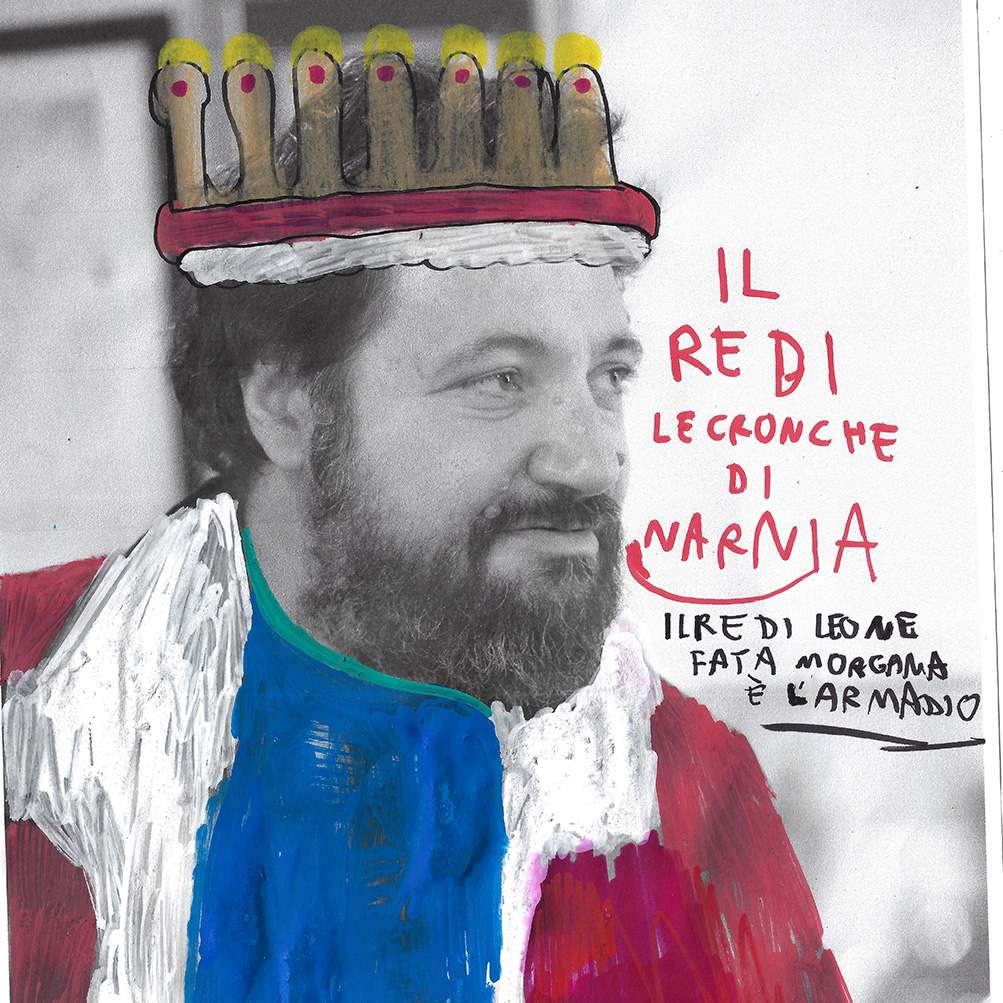 IL
RE DI
LE CRONCHE
DI
NARNIA
IL RE DI LEONE
FATA MORGANA
È L'ARMADIO